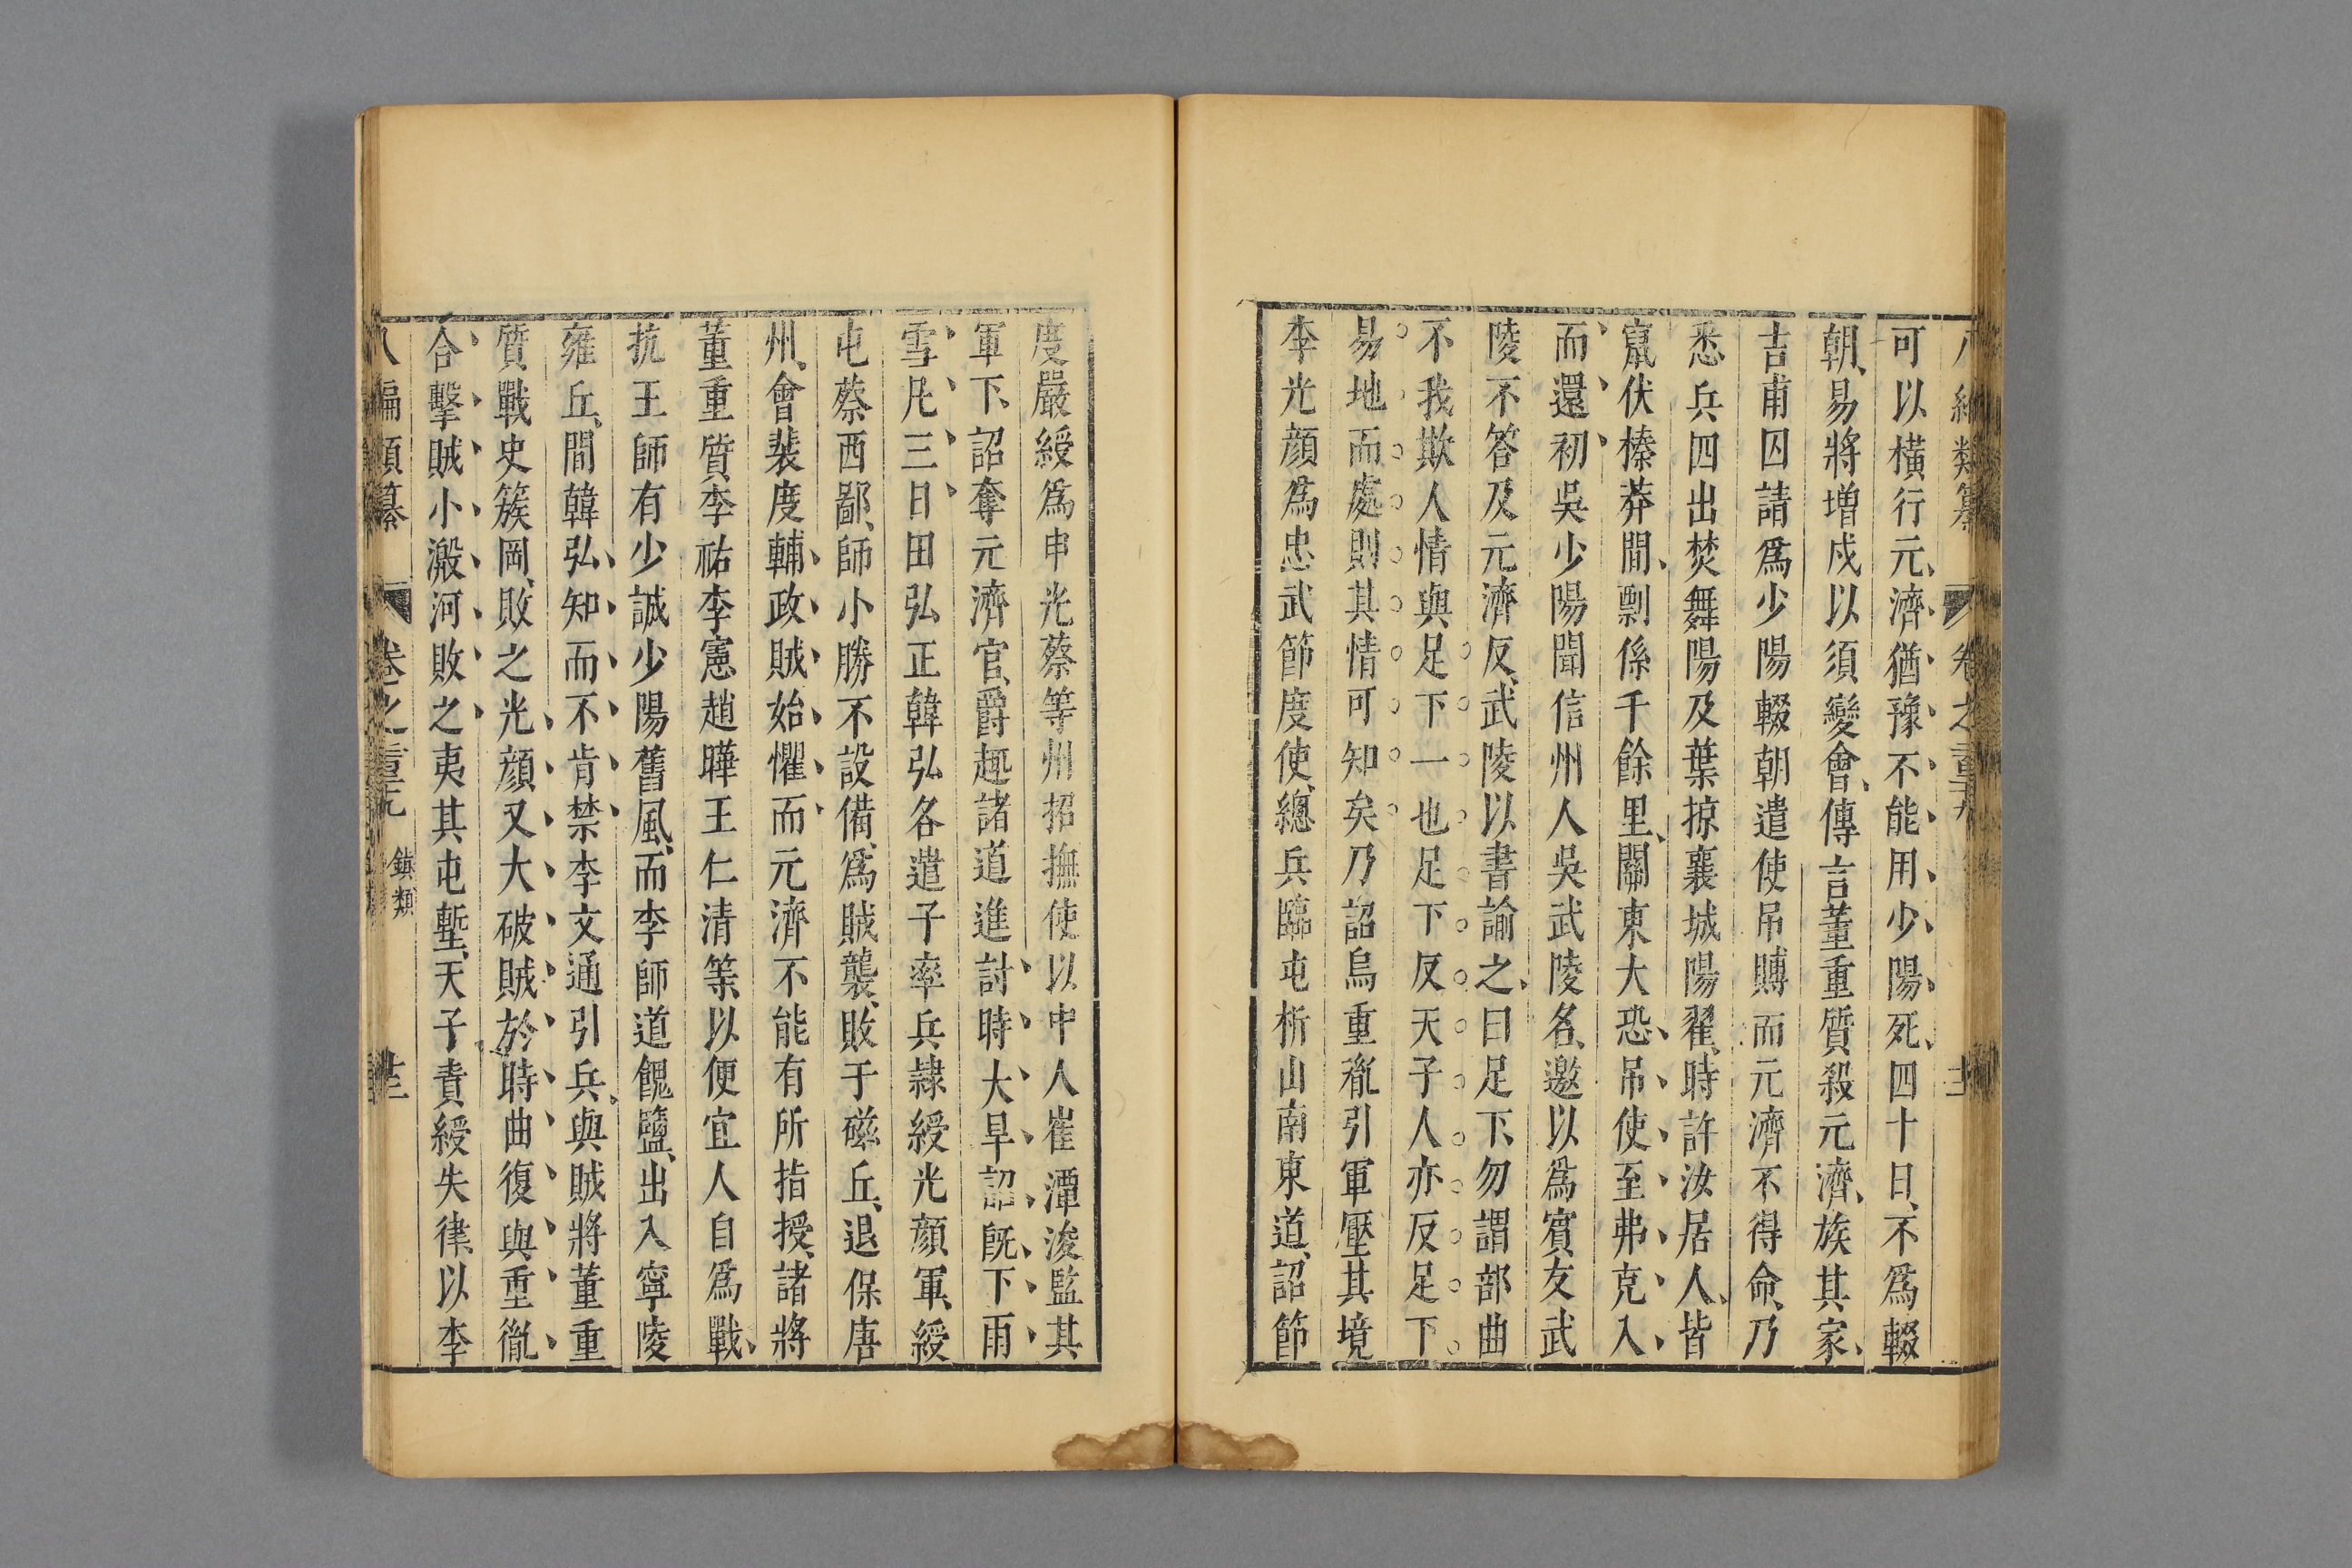 可以橫行元濟猶豫不能用少陽死四十日不爲輟
朝易將增戍以須變會傳言董重質殺元濟族其家
吉甫因請爲少陽輟朝遣使吊賻而元濟不得命乃
悉兵四出焚舞陽及葉掠襄城陽翟時許汝居人皆
竄伏榛莽間剽係千餘里關東大恐吊使至弗克入
而還初吳少陽聞信州人吳武陵名邀以爲賓友武
陵不答及元濟反武陵以書諭之曰足下勿謂部曲
不我欺人情與足下一也足下反天子人亦反足下
易地而處則其情可知矣乃詔烏重胤引軍壓其境
李光顔爲忠武節度使總兵臨屯析山南東道詔節
度嚴綬爲申光蔡等州招撫使以中人崔潭浚監其
軍下詔奪元濟官爵趣諸道進討時大旱詔旣下雨
雪凡三日田弘正韓弘各遣子率兵隷綬光顔軍綬
屯蔡西鄙師小勝不設備爲賊襲敗于磁丘退保唐
州會裴度輔政賊始懼而元濟不能有所指授諸將
董重質李祐李憲趙曄王仁清等以便宜人自爲戰
抗王師有少誠少陽舊風而李師道餽鹽出入寧陵
雍丘間韓弘知而不肯禁李文通引兵與賊將董重
質戰史簇岡敗之光顔又大破賊於時曲復與重胤
合擊賊小溵河敗之夷其屯塹天子責綬失律以李
八編類纂 卷之 鎮類